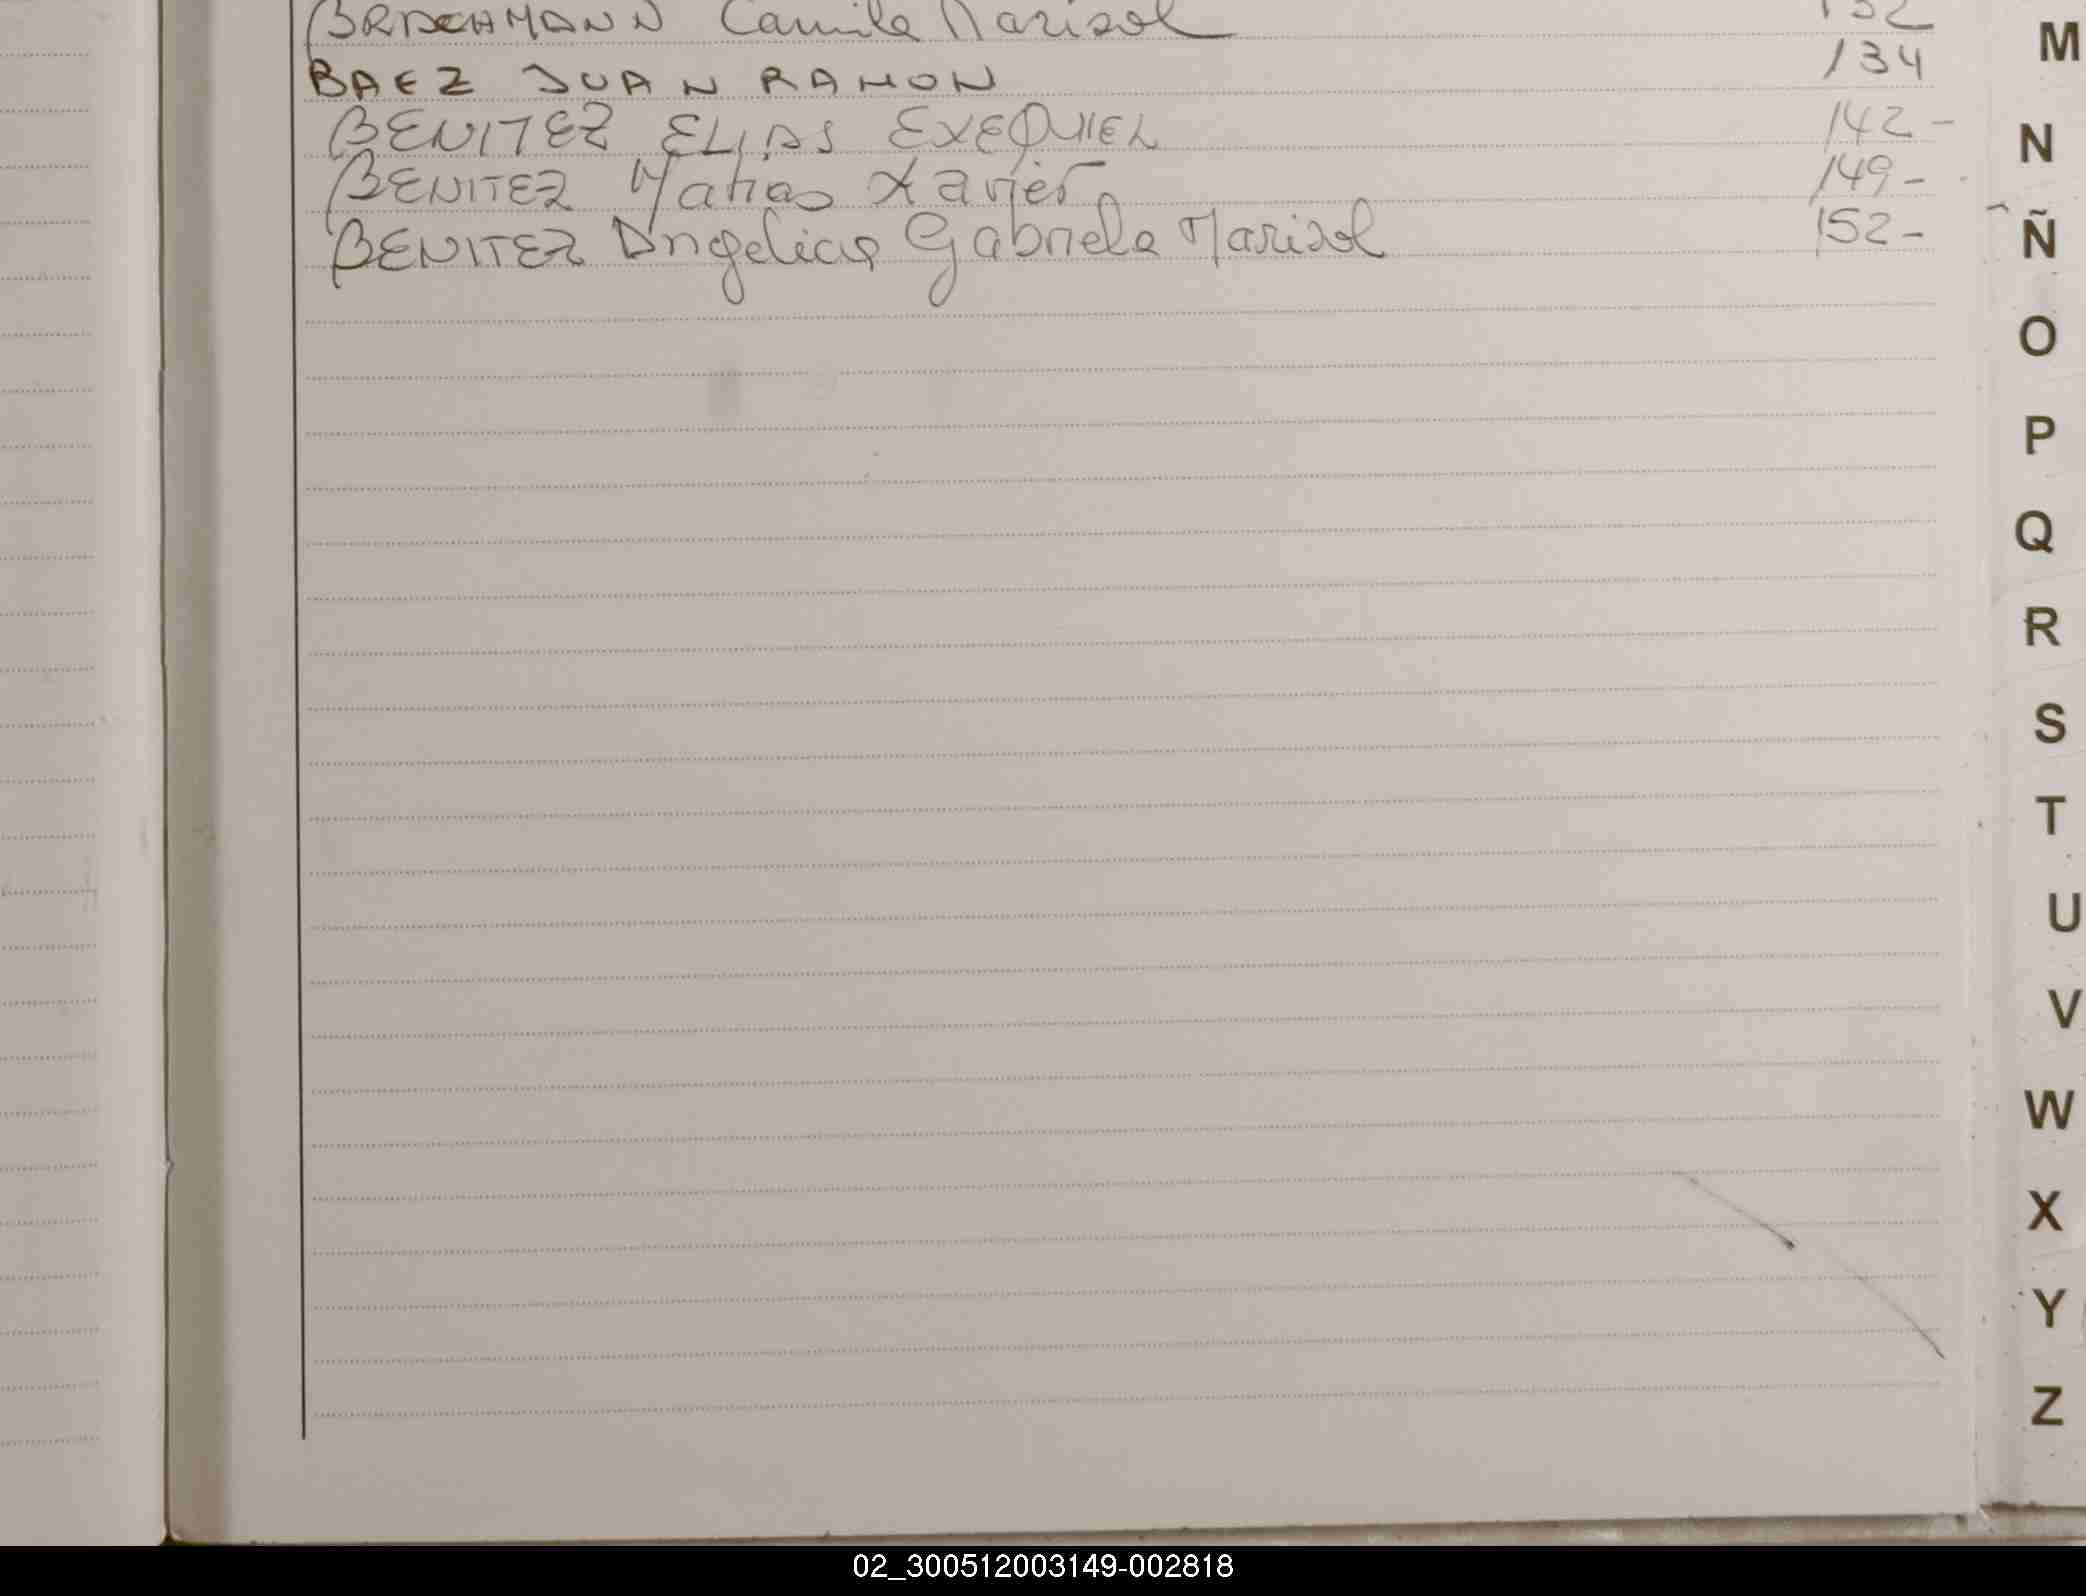 BRACHMANN Camila Marisol 132
BAEZ JUAN RAMON 134
BENITEZ ELIAS EXEQUIEL 142-
BENITEZ Matias Xavier 149-
BENITEZ Angelica Gabriela Marisol 152-
M
N
Ñ
O
P
Q
R
S
T
U
V
W
X
Y
Z
02_300512003149-002818